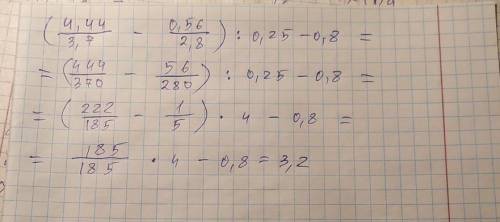 (4,44/3,7 − 0,56/2,8) : 0,25 − 0,8 =
= (444/370 − 56/280) : 0,25 − 0,8 =
= (222/185 − 1/5) · 4 − 0,8 =
= 185/185 · 4 − 0,8 = 3,2